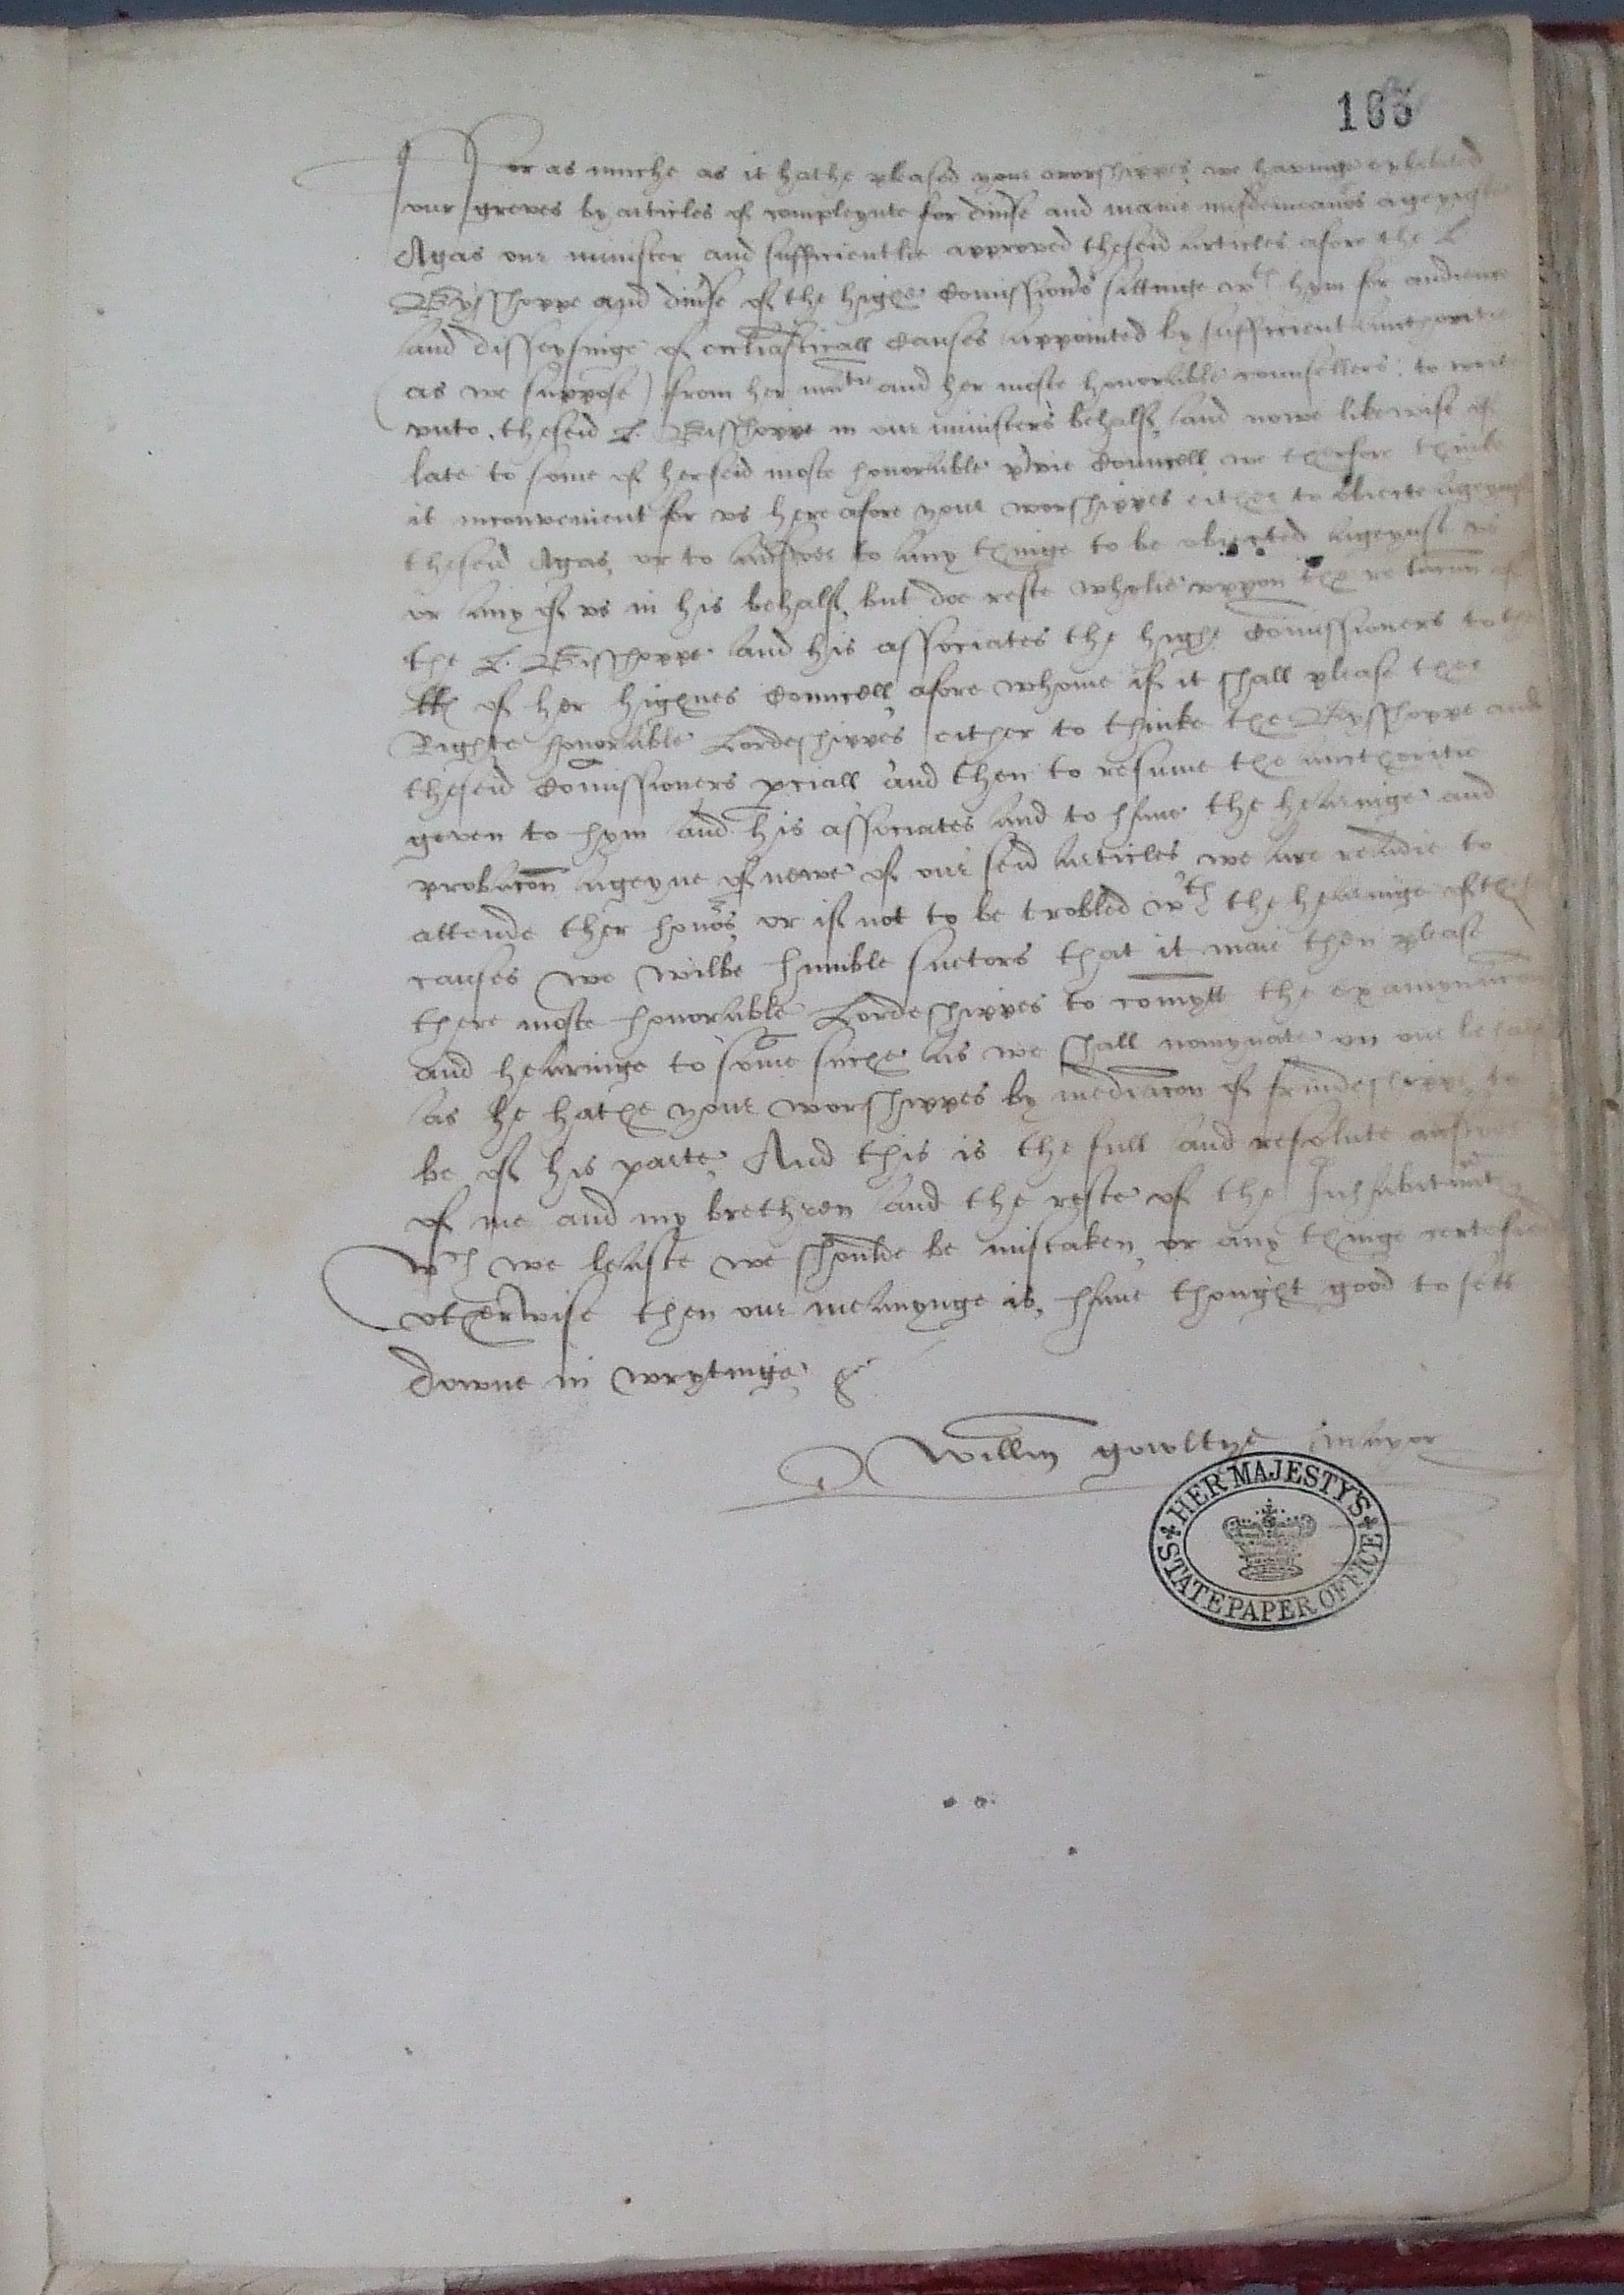 165
For as muche as it hathe pleased your worshippes, we havinge exhibited
our greves by articles of compleynte for div̉se and manie misdemeano͛s ageynst
Agas our minister and sufficientlie approved theseid articles afore the L
Bysshoppe and div̉se of the highe Comissiono͛s sittinge wth hym for audience
and of eccl̃iasticall Causes appointed by sufficient aucthoritie
(as we suppose) from her matie and her moste honorable counsellers. to write
vnto. theseid L. Bisshoppe in our ministers behalf, and nowe likewise of
late to some of herseid moste honorable privie Councell, we therfore thinke
it inconvenient for vs here afore your worshippes either to obiecte ageynst
theseid Agas, or to answer to any thinge to be obiected ageynst vs
or any of vs in his behalf, but doe reste wholie vppon the relac̃on of
the L. Bisshoppe and his associates the highe Com̃issioners to the
LL of her highnes Councell, afore whome if it shall please ther
Righte honorable Lordeshippes either to thinke the Bysshoppe and
theseid Com̃issioners p̱ciall and then to resume the aucthoritie
geven to hym and his associates and to have the hearinge and
probac̃on ageyne of newe of our seid articles we are readie to
attende ther hono͛s, or if not to be trobled wth the hearinge of
causes we wilbe humble suetors that it maie then please
there moste honorable Lordeshippes to com̃ytt the examynac̃on
and hearinge to some suche as we shall nomynate on our behalf
as he hathe your worshippes by mediac̃on of frindeshippe to
be of his parte, And this is the full and resolute answer
of me and my brethren and the reste of the Inhabitants
wch we leaste we shoulde be mistaken or any thinge certefied
otherwise then our meanynge is, have thought good to sett
downe in wrytinge &c
Willm gowltye mayor
HER MAJESTY'S
STATE PAPER OFFICE